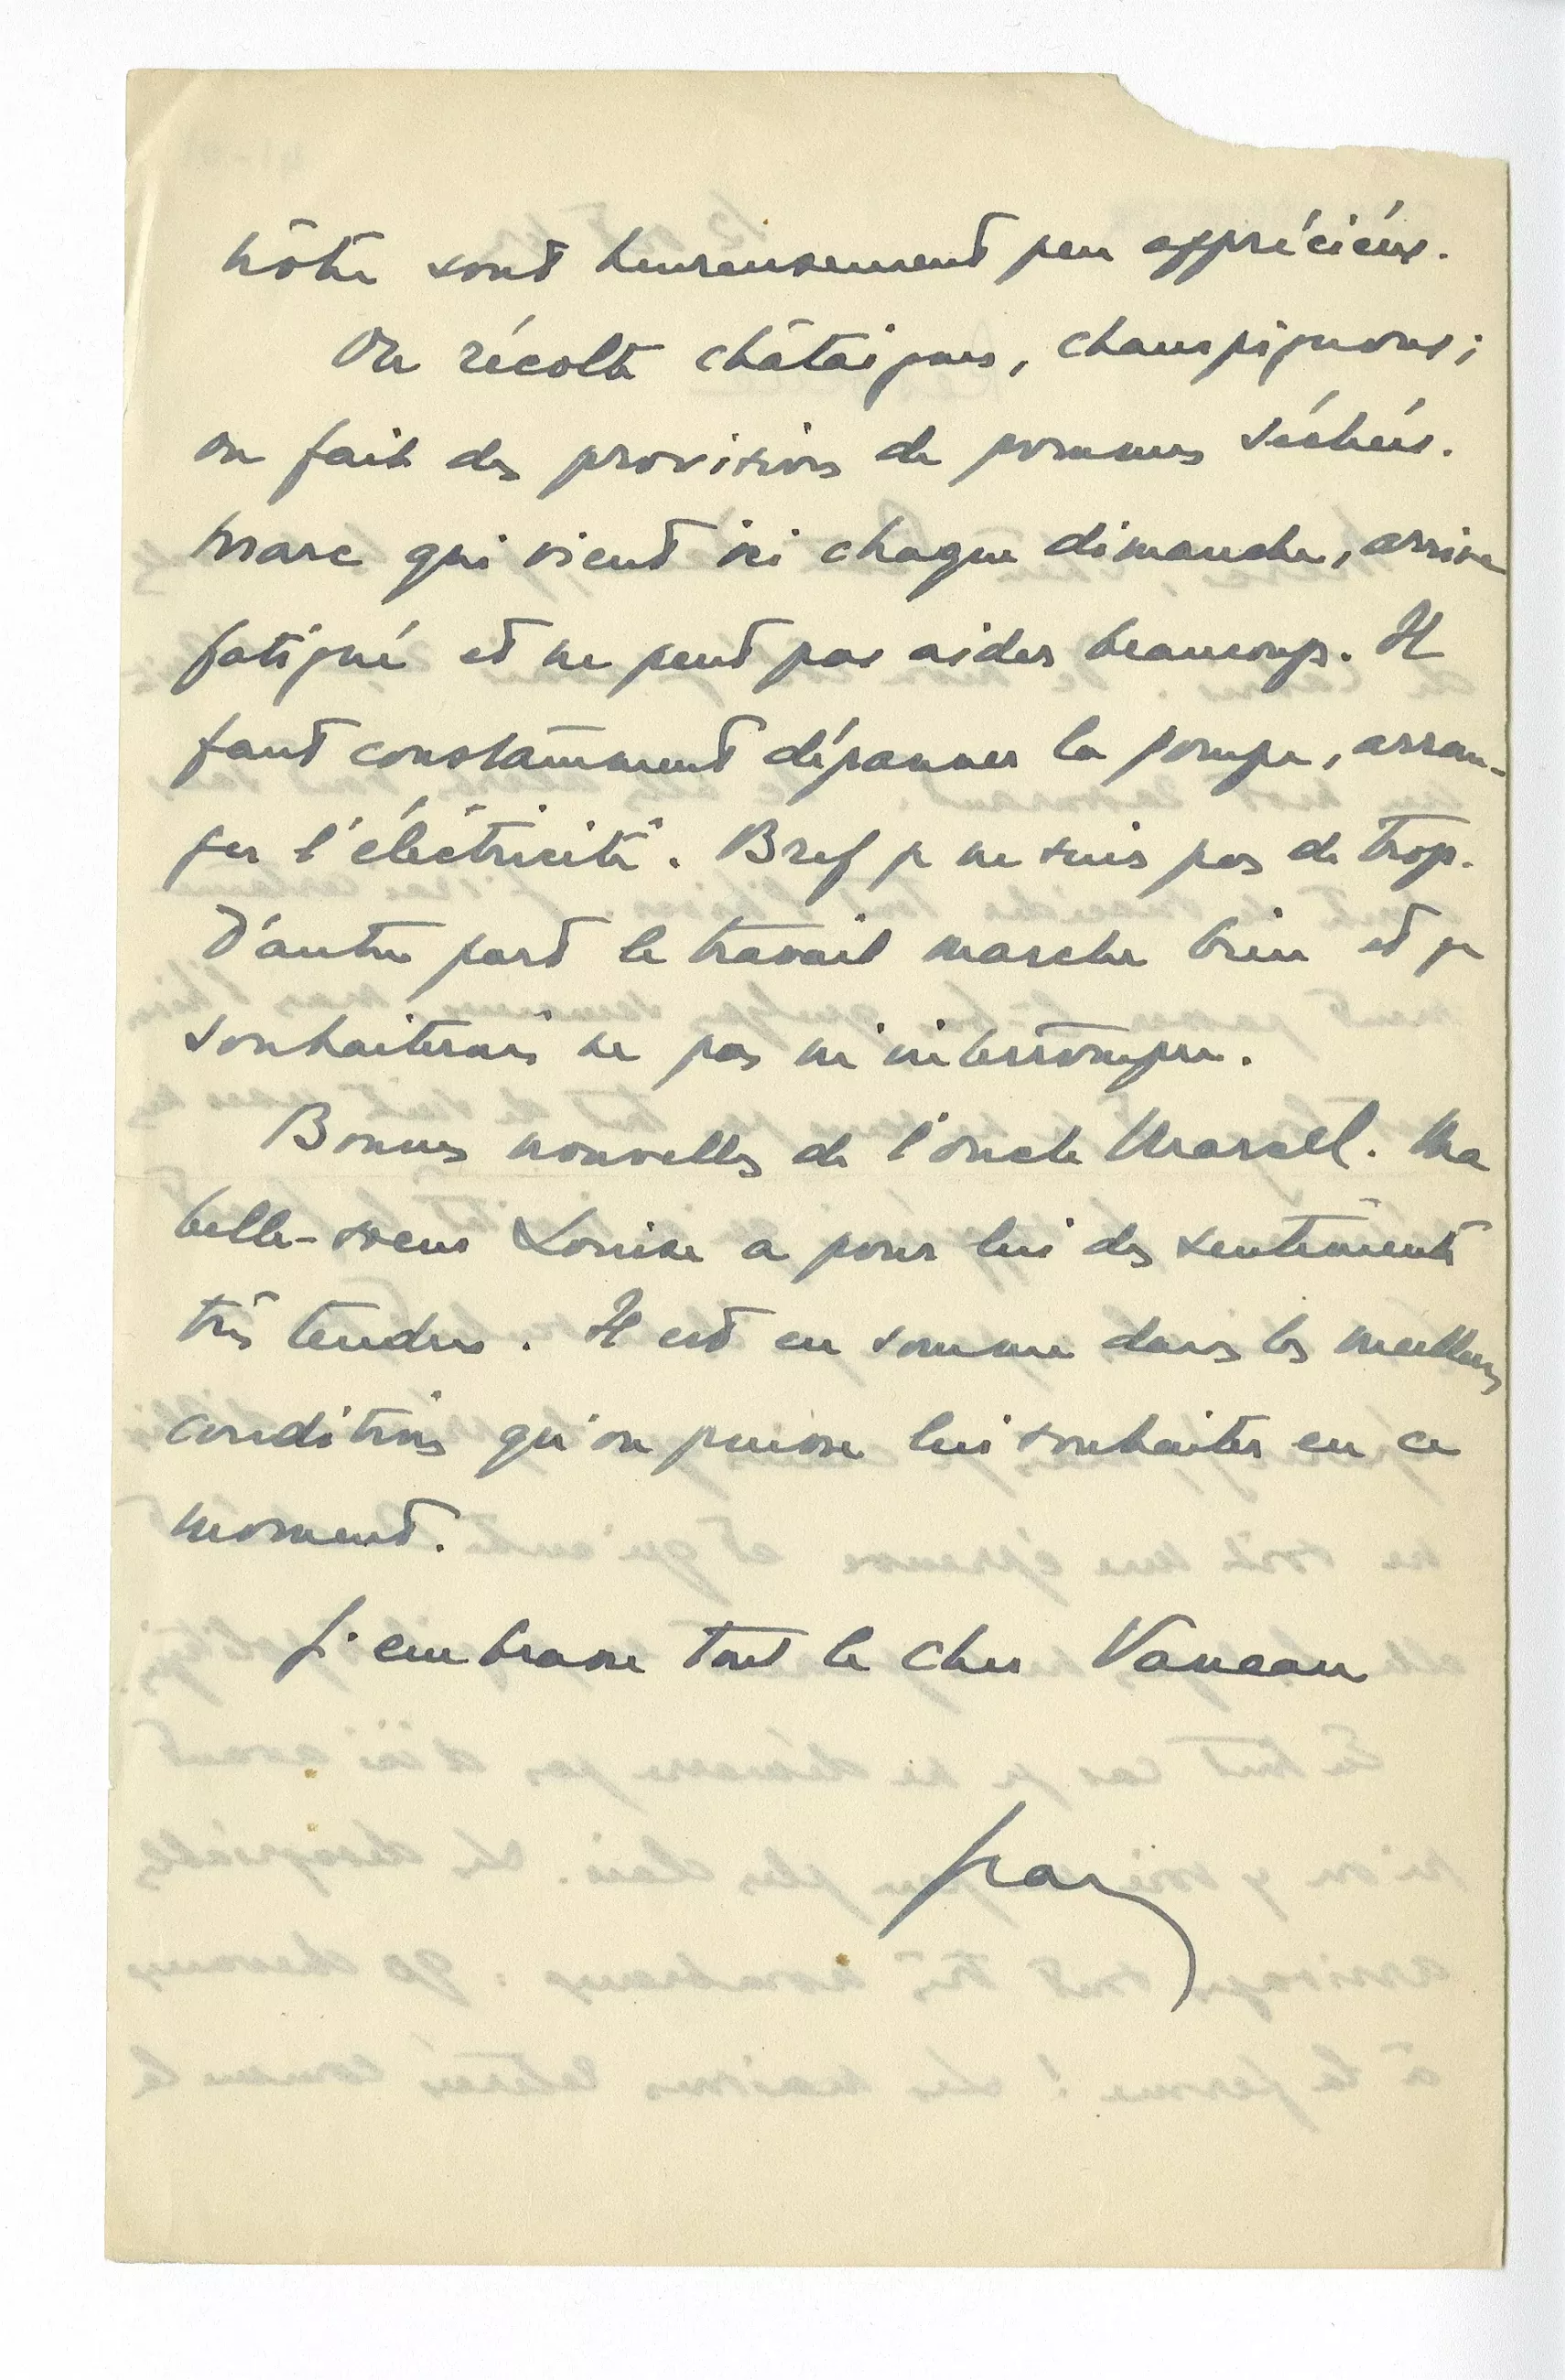 nôtre sont heureusement peu appréciées.
On récolte châtaignes, champignons ;
on fait des provisions de pommes séchées.
Marc qui vient ici chaque dimanche, arrive
fatigué et ne peut pas aider beaucoup. Il
faut constamment dépanner la pompe, arran-
ger l'électricité. Bref je ne suis pas de trop.
D'autre part le travail marche bien et je
souhaiterais ne pas m'interrompre.
Bonnes nouvelles de l'oncle Marcel. Ma
belle-soeur Louise a pour lui des sentiments
très tendres. Il est en somme dans les meilleures
conditions qu'on puisse lui souhaiter en ce
moment.
J'embrasse tout le cher Vaneau